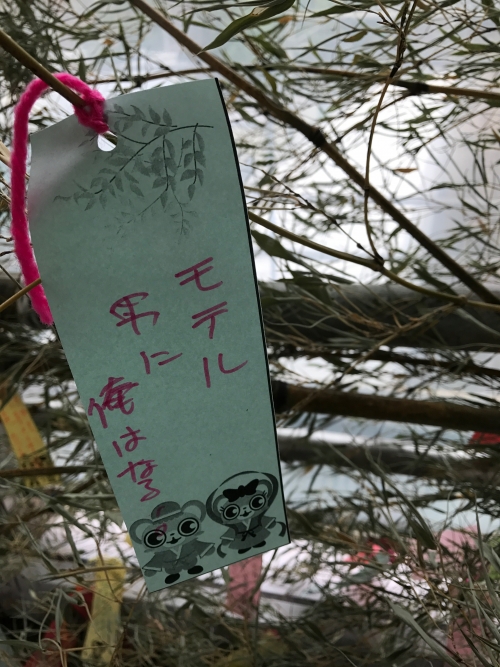 モテル
男に
俺はなる